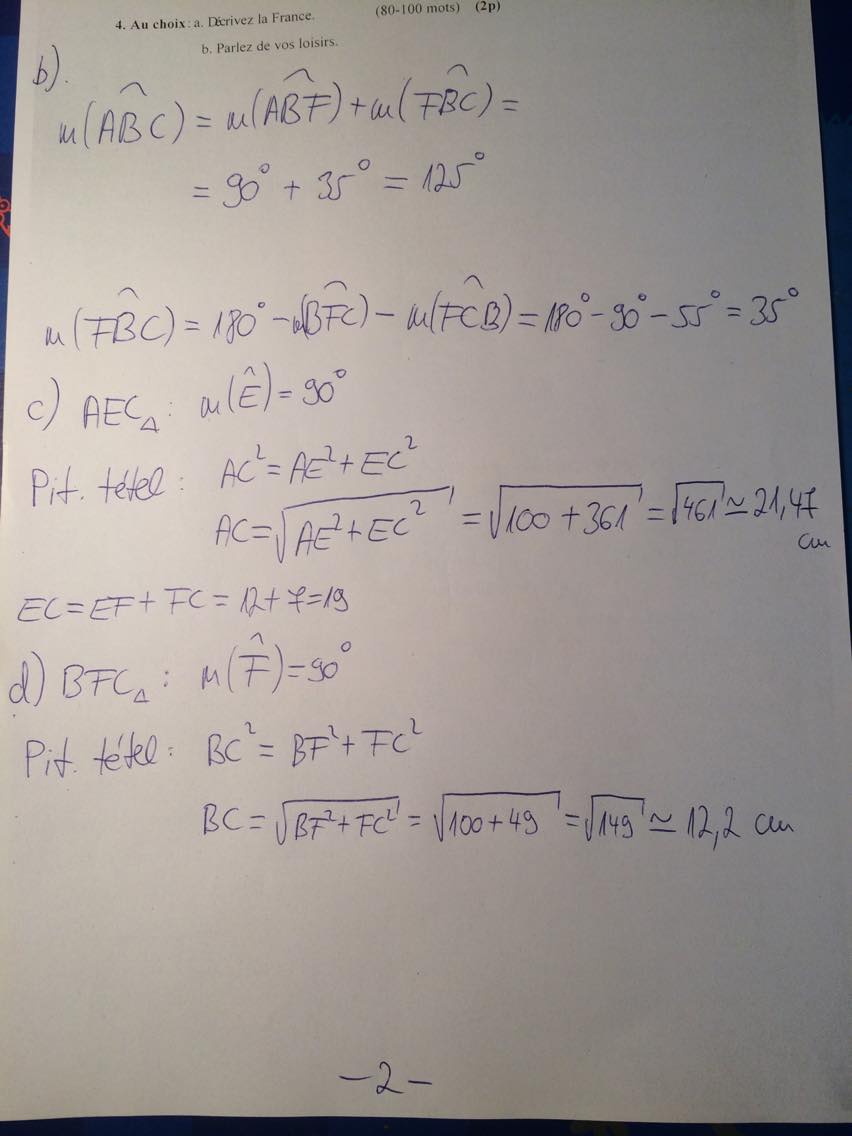 4. Au choix: a. Décrivez la France. (80-100 mots) (2p)
b. Parlez de vos loisirs.
b).
m(ABC^) = m(ABF^) + m(FBC^) =
= 90° + 35° = 125°
m(FBC^) = 180° - m(BFC^) - m(FCB^) = 180° - 90° - 55° = 35°
c) AEC△ : m(Ê) = 90°
Pit. tétel : AC² = AE² + EC²
AC = √(AE² + EC²) = √(100 + 361) = √461 ≃ 21,47
cm
EC = EF + FC = 12 + 7 = 19
d) BFC△ : m(F^) = 90°
Pit. tétel : BC² = BF² + FC²
BC = √(BF² + FC²) = √(100 + 49) = √149 ≃ 12,2 cm
- 2 -